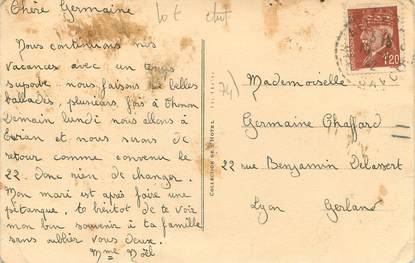 Chère Germaine
lot
Nous continuons nos
vacances avec un temps
superbe nous faisons de belles
ballades, plusieurs fois à Thonon
Demain lundi nous allons à
Evian et nous serons de
retour comme convenu le
22. Donc rien de changer.
Mon mari est après faire une
pétanque, te bientot de te voir
mon bon souvenir à ta famille
sans oublier vous deux.
Mme Noël
COLLECTION DE L'HOTEL
74)
1f20
Mademoiselle
Germaine Chaffard
22 rue Benjamin Delessert
Lyon Gerland